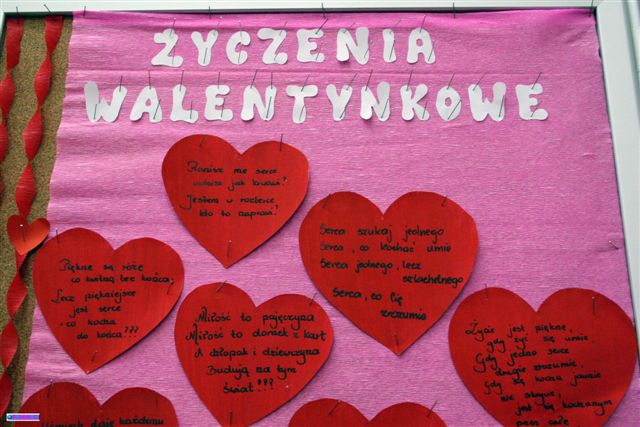 ŻYCZENIA
WALENTYNKOWE
Ranisz me serce
widzisz jak krwawi?
Jestem w rozterce
kto to naprawi?
Serca szukaj jednego
Serca, co kochać umie
Serca jednego, lecz
szlachetnego
Serca, co Cię
zrozumie
Piękne są róże
co kwitną bez końca,
Lecz piękniejsze
jest serce
co kocha
do końca???
Miłość to pajęczyna
Miłość to domek z kart
A chłopak i dziewczyna
Budują na tym
świat???
Życie jest piękne,
gdy żyć się umie.
Gdy jedno serce
drugie zrozumie,
Gdy się kocha jawnie
nie skrycie,
jest się kochanym
przez całe
daje każdemu